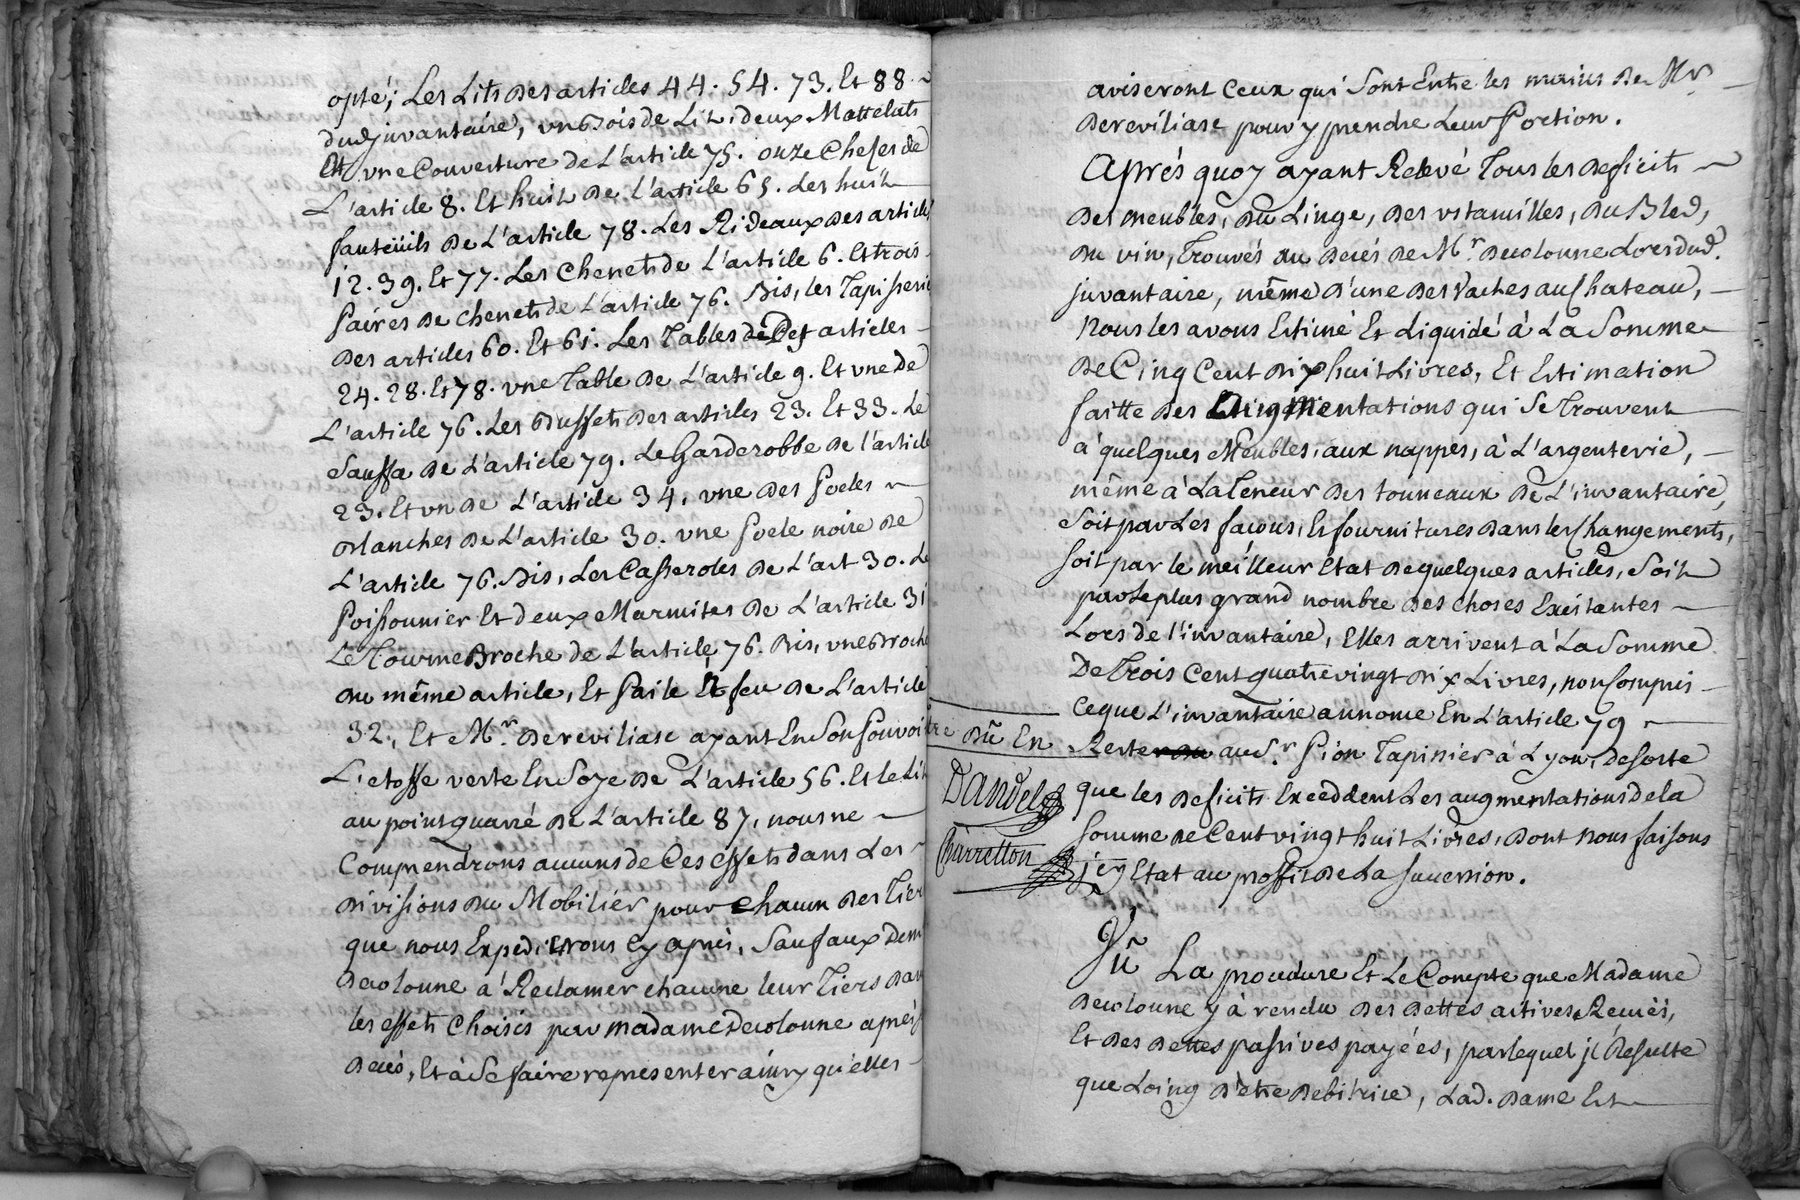 opté; Les Lits des articles 44. 54. 73. Et 88
dud juvantaire, vn Bois de Lit, deux Mattelats
Et vne Couverture de L'article 75. onze Cheses de
L'article 8. Et huit de l'article 65. Les huit
fauteüils de L'article 78. Les Rideaux des articles
12. 39. Et 77. Les Chenets de L'article 6. Et trois
Paires de chenets de L'article 76. Bis, les Tapisserie
des articles 60. Et 61. Les Tables des articles
24. 28. Et 78. vne Table de L'article 9. Et vne de
L'article 76. Les Buffets des articles 23. Et 33. Le
Sauffa de L'article 79. Le Garderobbe de l'article
23. Et vn de L'article 34, vne des Poeles
blanches de L'article 30. vne Poele noire de
L'article 76. Bis, Les Casseroles de L'art 30. Le
Poissonnier Et deux Marmites de L'article 31
Le Tourne Broche de L'article 76. Bis, vne Broche
du même article, Et Paile Et feu de L'article
32., Et Mr. Dereviliase ayant En Son Pouvoi
L'etoffe verte En Soye de L'article 56. Et le Lit
au point quarré de L'article 87, nous ne
Comprendrons aucuns de Ces effets dans Les
divisions du Mobilier pour chacun des Tier
que nous Expedierons Cy après, Sauf aux Dem
Decolonne à Reclamer chacune leur Tiers dan
les effets Choisis par madame Decolonne après
decés, Et à Se faire representer ainsy qu'elles
aviseront Ceux qui Sont Entre les mains de Mr.
Dereviliase pour y prendre Leur Portion.
Aprés quoy ayant Relevé Tous les deficits
des meubles, du Linge, des vstancilles, du Bled,
du vin, Trouvés au decés de Mr. Decolonne Lors dud.
juvantaire, même d'une des Vaches au Chateau,
Nous les avons Estimé Et Liquidé à La Somme
de Cinq Cent dix huit Livres, Et Estimation
faitte des Augmentations qui Se Trouvent
à quelques Meubles, aux nappes, à L'argenterie,
même à La Teneur des tonneaux de L'invantaire,
Soit par Les façons, Et fournitures dans les Changements,
Soit par le meilleur Etat de quelques articles, Soit
par Le plus grand nombre des choses Existantes
Lors de l'invantaire, Elles arrivent à La Somme
De Trois Cent quatre vingt dix Livres, non Compris
Ceque L'invantaire annonce En L'article 79
tre dû En
Reste au Sr. Pion Tapissier à Lyon, de Sorte
Dandel
que les deficits Exceddent Les augmentations de la
Charretton
Somme de Cent vingt huit Livres, dont nous faisons
jcy Etat au proffit de La Succession.
Vû La procedure Et Le Compte que Madame
Decolonne y à rendu des dettes actives Recües,
Et des dettes passives payées, par lequel jl Resulte
que Loing d'être debitrice, Lad. Dame Est